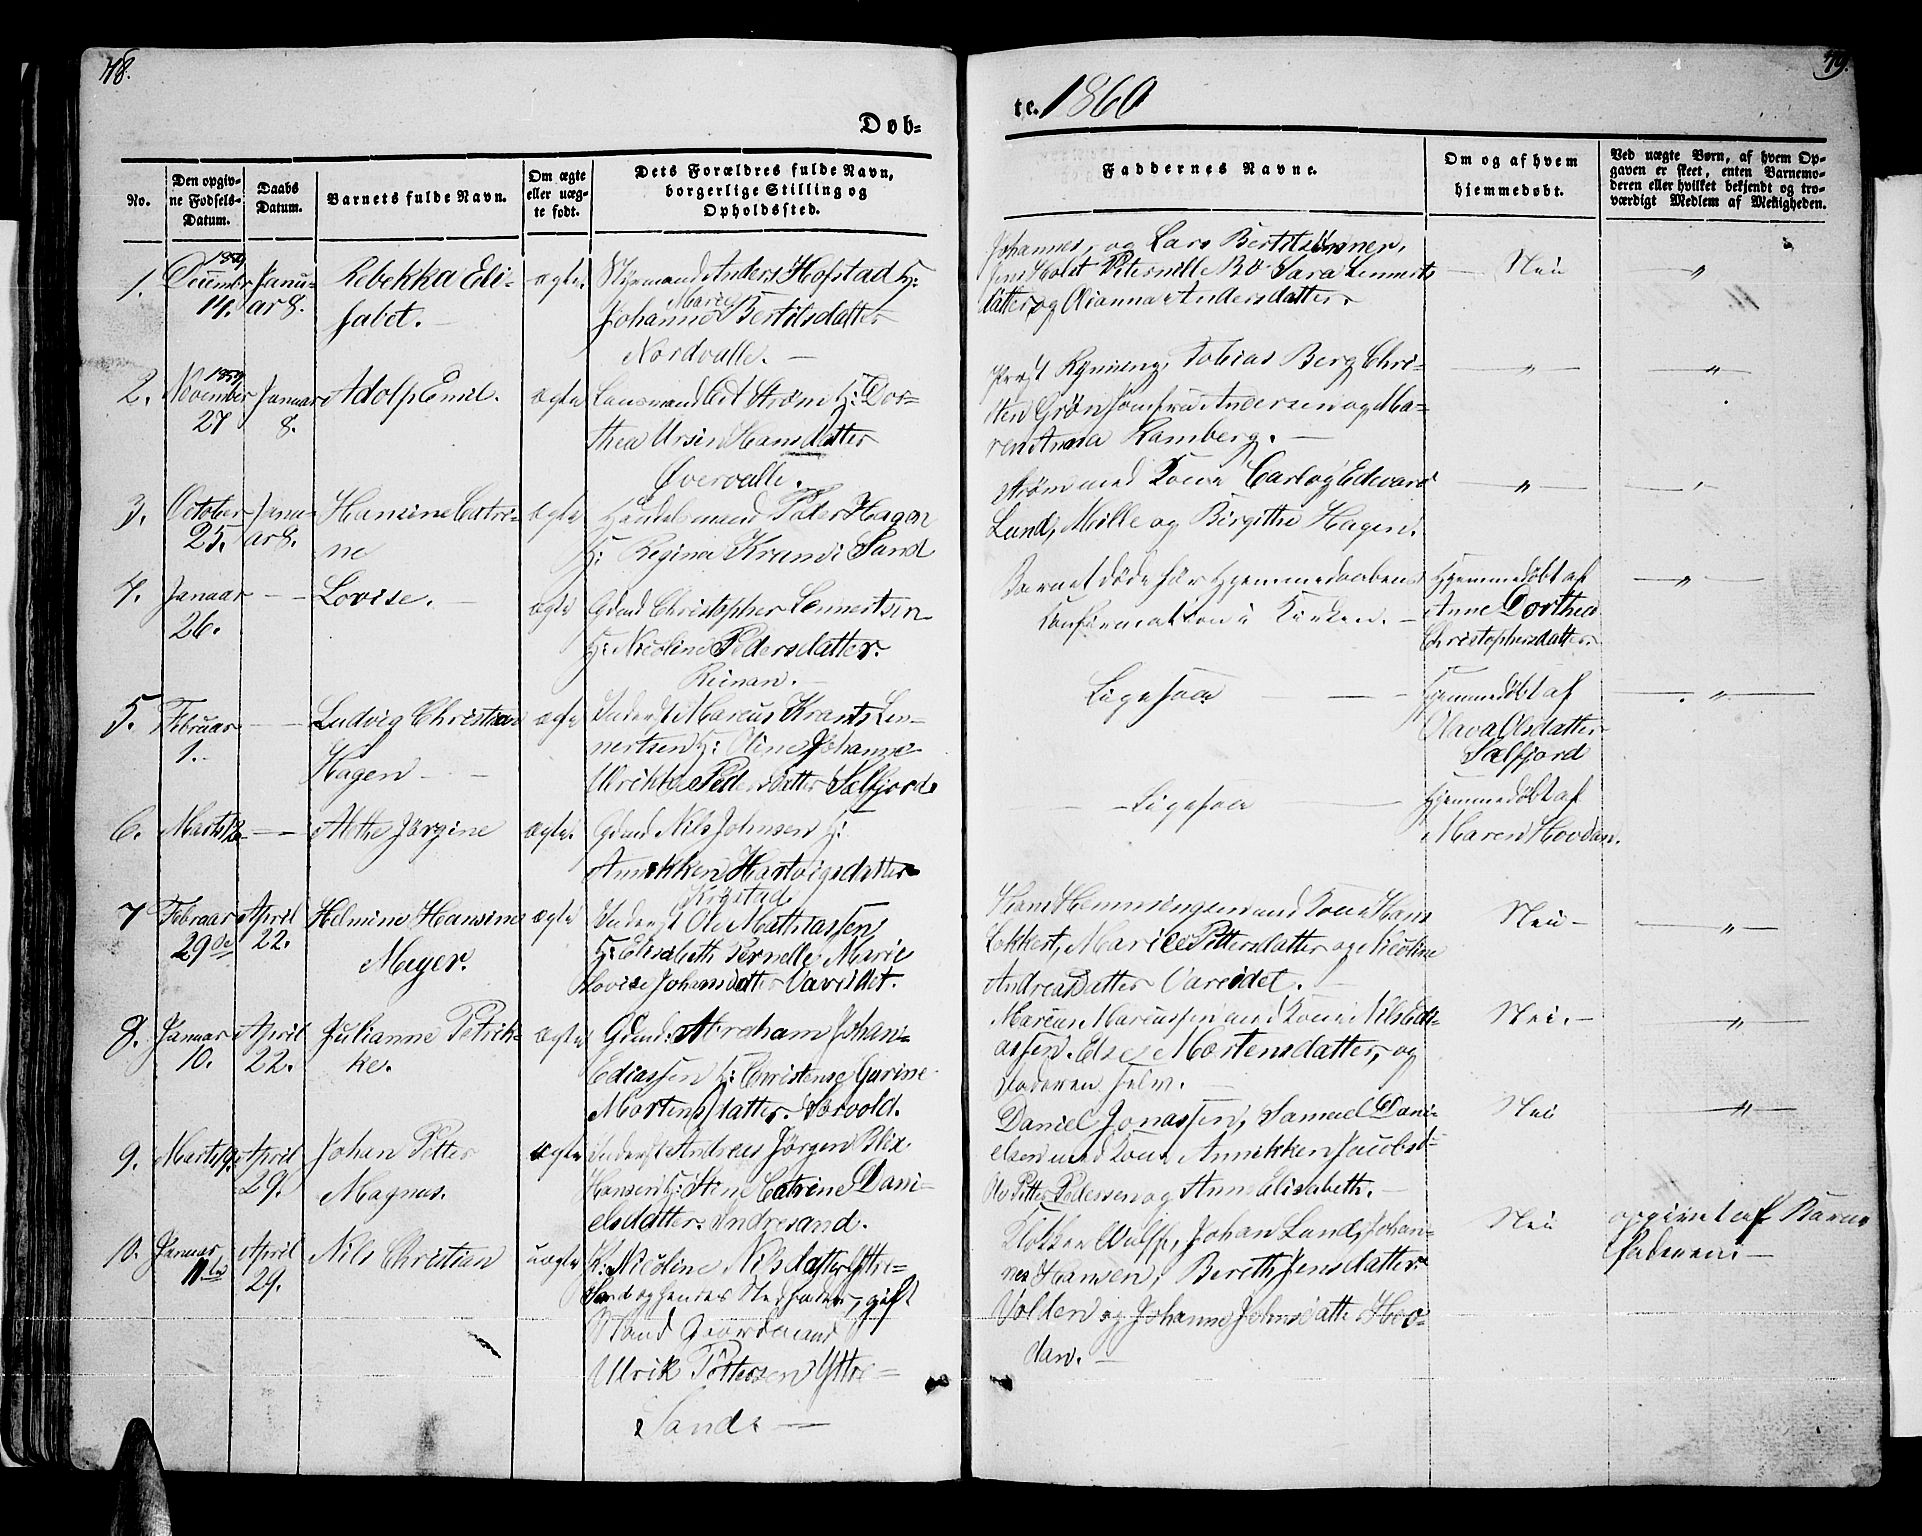 78.
79.
Døb-
te. 1860
No.
Den opgiv-
ne Fødsels-
Datum.
Daabs
Datum.
Barnets fulde Navn.
Om ægte
eller uæg-
te født.
Dets Forældres fulde Navn,
borgerlige Stilling og
Opholdssted.
Faddernes Navne.
Om og af hvem
hjemmedøbt.
Ved uægte Børn, af hvem Op-
gaven er skeet, enten Barnemo-
deren eller hvilket bekjendt og tro-
værdigt Medlem af Menigheden.
1. 1859 December 14. Januar 8. Rebekka Eli-
sabet. ægte. Styrmand Anders Hofstad H:
Johanna Marie Bertilsdatter
Nordvalle.
Johannes, og Lars Bertilsønner,
Jens Holst Peternille Bø Sara Lennerts
datter og Andersdatter. Nei "
2. 1859 November 27 Januar 8. Adolf Emil. ægte Lensmand Strøm H: Dor-
thea Ursin Hansdatter
Øvervalle.
Tobias Berg Chri-
sten Grøn Jomfru Andersen og Ma-
ren Anna Ramberg. " "
3. October 25. Januar 8. Hansine Catri-
ne ægte Handelsmand Peter Hagen
H: Regina Sand
Strøm med Kone Carl og Edevard
Lund, Mille og Birgithe Hagen. " "
4. Januar 26. Lovise. ægte Gdmd Christopher Lennertsen
H: Nicoline Pedersdatter.
Reinan.
Barnet døde før Hjemmedaabens
Confirmation i Kirken. Hjemmedøbt af
Anne Dorthea
Christophersdatter. "
5. Februar 1. Ludvig Christian
Hagen ægte Inderst Marcus Krants Len-
nertsen H: Oline Johanna
Ulrikke Pedersdatter Sælfjord.
Ligesaa Hjemmedøbt af
Olava Olsdatter
Sælfjord "
6. Marts Abthe Jørgine ægte. Gdmd Nils Johnsen H:
Annikken Hartvigsdatter
Ligesaa Hjemmedøbt af
Maren Hovdan.
7 Februar 29de April 22. Helmine Hansine
Meyer. ægte Inderst Ole Mathiassen
H: Elisabeth Pernelle Marie
Lovise Johansdatter Vareidet.
Hans Henningsen med Kone Hans
Ekkert, Marie Pettersdatter og Nicoline
Andreasdatter Vareidet. Nei "
8. Januar 10. April 22. Julianne Petrik-
ke. ægte Gdmd: Abraham Johan
Eliassen H: Christense Gurine
Mortensdatter. Sørvold.
Marcus Marcussen med Kone Nils Eli-
assen. Else Mortensdatter, og
Faderen selv. Nei. "
9. Marts 9. April 29. Johan Petter
Magnus. ægte Inderst Andreas Jørgen Blix
Hansen H: Stine Catrine Dani-
elsdatter. Indresand.
Daniel Jonassen, Samuel Dani-
elsen med Kone Annikken Jacobsd
Ole Petter Pedersen og Ann Elisabeth. Nei "
10. Januar 11te April 29. Nils Christian uægte K: Nicoline Nilsdatter Yttre-
Sand og hendes Stedfader, gift
Stand Gaardmand
Ulrik Pettersen Yttre-
Sand.
Klokker Wulff, Johan Lund, Johan-
nes Hansen, Bereth Jensdatter
Volden og Johanne Johnsdatt: Hov-
dan. Nei opgivet af Barne
Faderen.